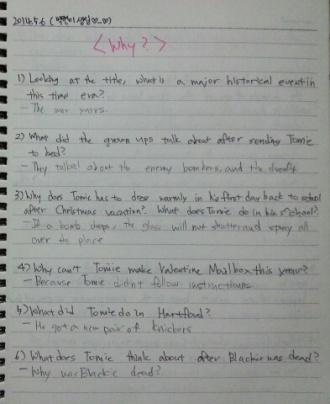 <Why?>
1) Looking at the title, what is a major historical event in
this time era?
- The war years.
2) What did the grown ups talk about after sending Tomie
to bed?
- They talked about the enemy bombers, and the draft
3) Why does Tomie has to dress warmly in his first day back to school
after Christmas vacation? What does Tomie do in his school?
- If a bomb drops, the glass will not shatter and spray all
over the place
4) Why can't Tomie make Valentine Mailbox this year?
- Because Tomie didn't follow instructions
5) What did Tomie do in Hartford?
- He got a new pair of knickers
6) What does Tomie think about after Blackie was dead?
- Why was Blackie dead?